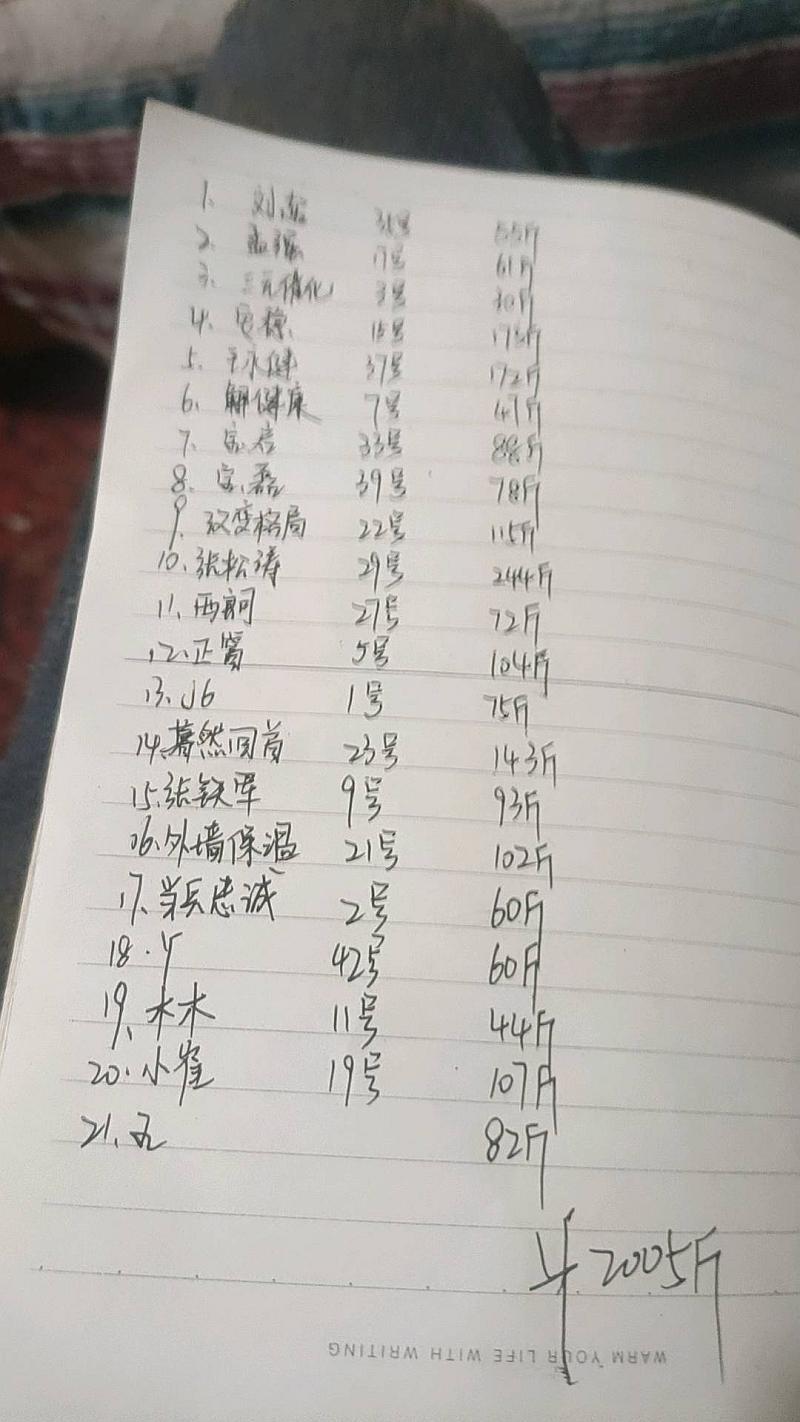 1. 刘 55斤
2. 孟 17号 61斤
3. 三元催化 3号 30斤
4. 15号 173斤
5. 于永健 37号 172斤
6. 解健康 7号 47斤
7. 33号 88斤
8. 宝磊 39号 78斤
9. 改变格局 22号 115斤
10. 张松涛 29号 244斤
11. 西 27号 72斤
12. 正 5号 104斤
13. J6 1号 75斤
14. 蓦然回首 23号 143斤
15. 张铁军 9号 93斤
16. 外墙保温 21号 102斤
17. 当兵忠诚 2号 60斤
18. 丫 42号 60斤
19. 木木 11号 44斤
20. 小崔 19号 107斤
21. 82斤
2005斤
WARM YOUR LIFE WITH WRITING